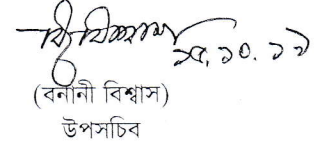 ২৫.১০.১১
(বনানী বিশ্বাস)
উপসচিব